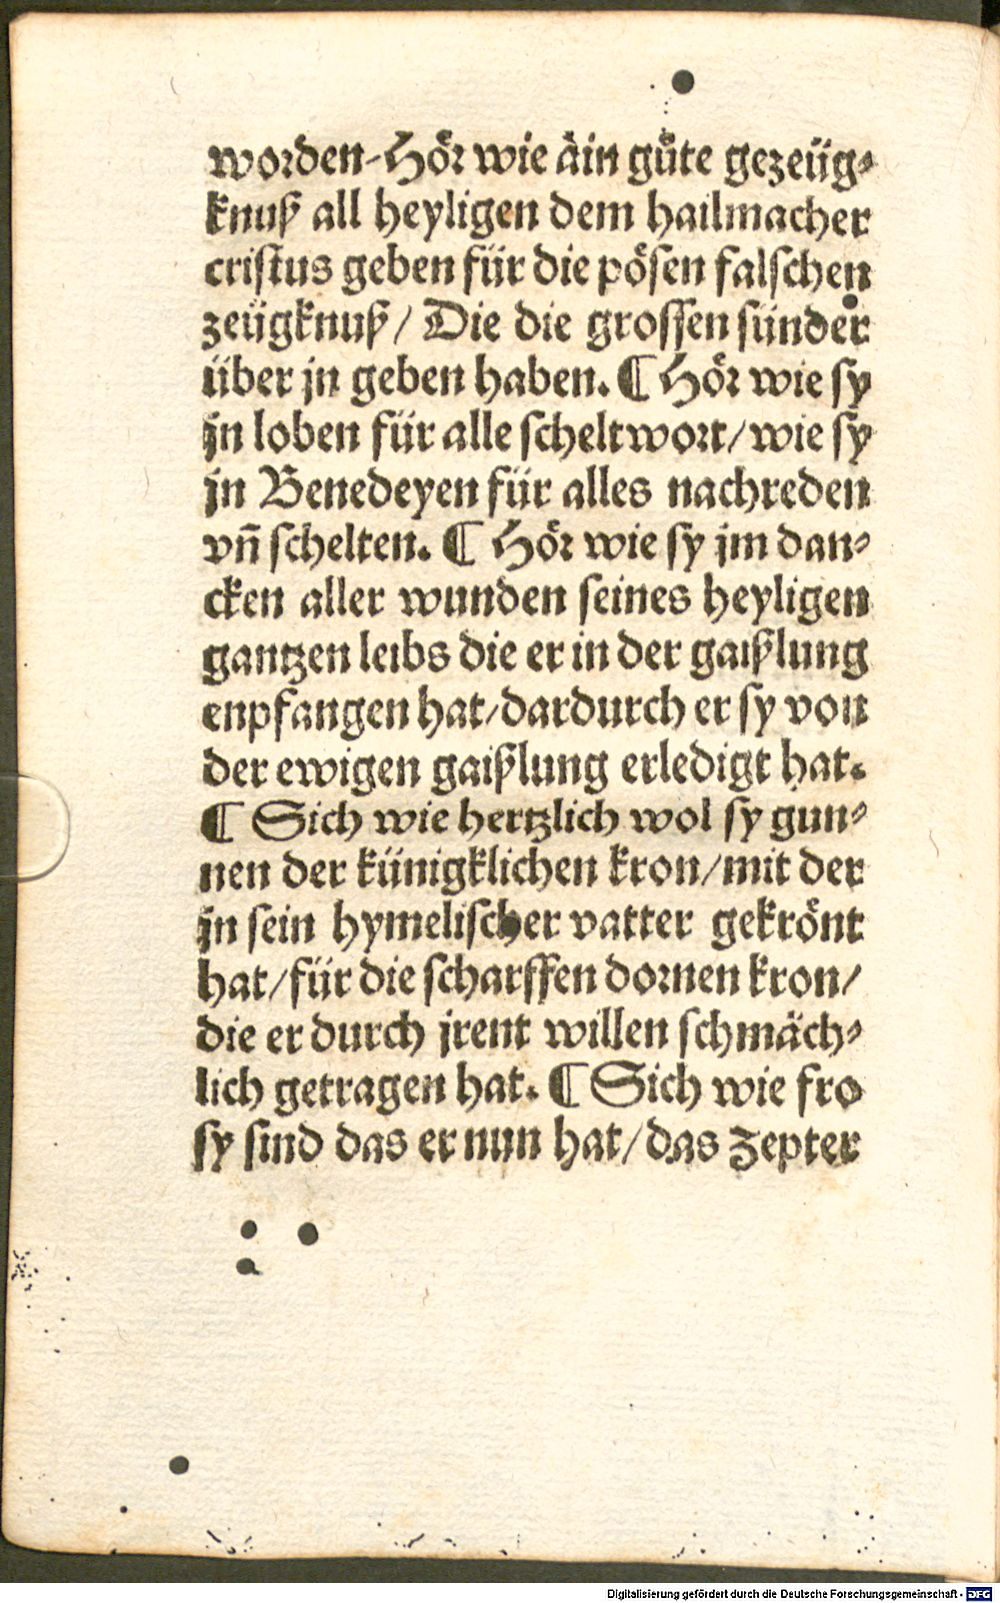 worden-Hoͤr wie ain guͦte gezeüg⸗
knuß all heyligen dem hailmacher
cristus geben für die pösen falschen
zeügknuß/ Die die grossen sünder
über jn geben haben. ¶ Hör wie sy
jn loben für alle scheltwort/wie sy
jn Benedeyen für alles nachreden
vñ schelten. ¶ Hör wie sy jm dan⸗
cken aller wunden seines heyligen
gantzen leibs die er in der gaißlung
enpfangen hat/dardurch er sy von
der ewigen gaißlung erledigt hat.
¶ Sich wie hertzlich wol sy gun⸗
nen der künigklichen kron/mit der
jn sein hymelischer vatter gekrönt
hat/für die scharffen dornen kron/
die er durch jrent willen schmäch⸗
lich getragen hat. ¶ Sich wie fro
sy sind das er nun hat/das zepter
Digitalisierung gefördert durch die Deutsche Forschungsgemeinschaft - DFG